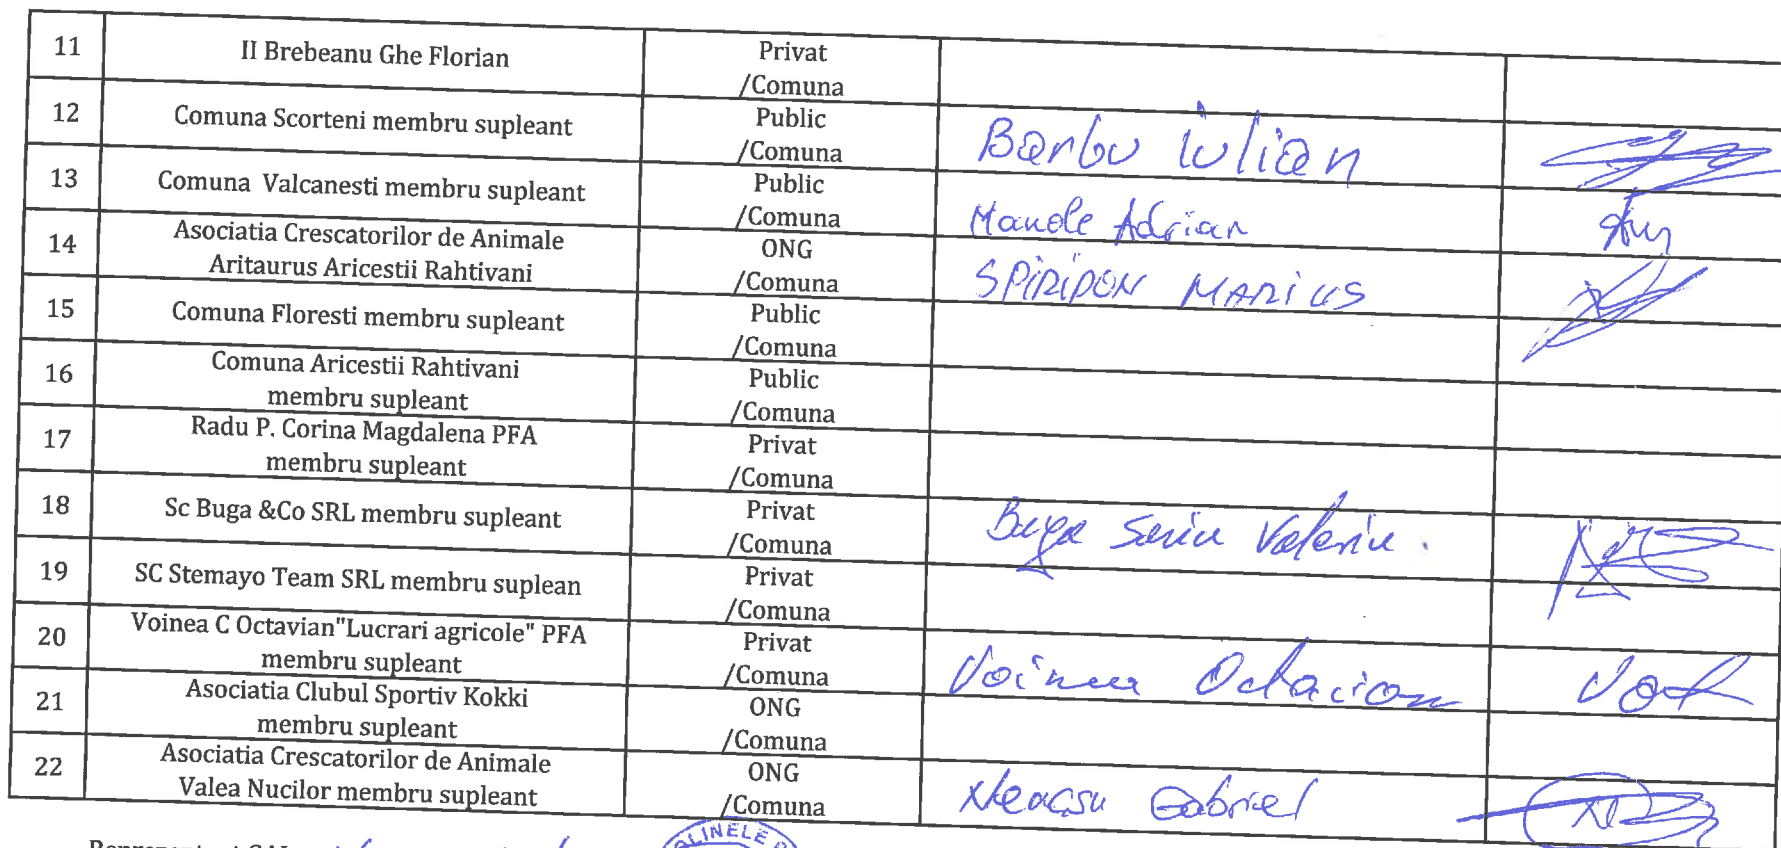 11 II Brebeanu Ghe Florian Privat
/Comuna
12 Comuna Scorteni membru supleant Public
/Comuna Barbu Iulian
13 Comuna Valcanesti membru supleant Public
/Comuna Manole Adrian
14 Asociatia Crescatorilor de Animale ONG
Aritaurus Aricestii Rahtivani /Comuna SPIRIDON MARIUS
15 Comuna Floresti membru supleant Public
/Comuna
16 Comuna Aricestii Rahtivani Public
membru supleant /Comuna
17 Radu P. Corina Magdalena PFA Privat
membru supleant /Comuna
18 Sc Buga &Co SRL membru supleant Privat
/Comuna Buga Valeriu
19 SC Stemayo Team SRL membru suplean Privat
/Comuna
20 Voinea C Octavian"Lucrari agricole" PFA Privat
membru supleant /Comuna Voinea Octavian
21 Asociatia Clubul Sportiv Kokki ONG
membru supleant /Comuna
22 Asociatia Crescatorilor de Animale ONG
Valea Nucilor membru supleant /Comuna Neacsu Gabriel